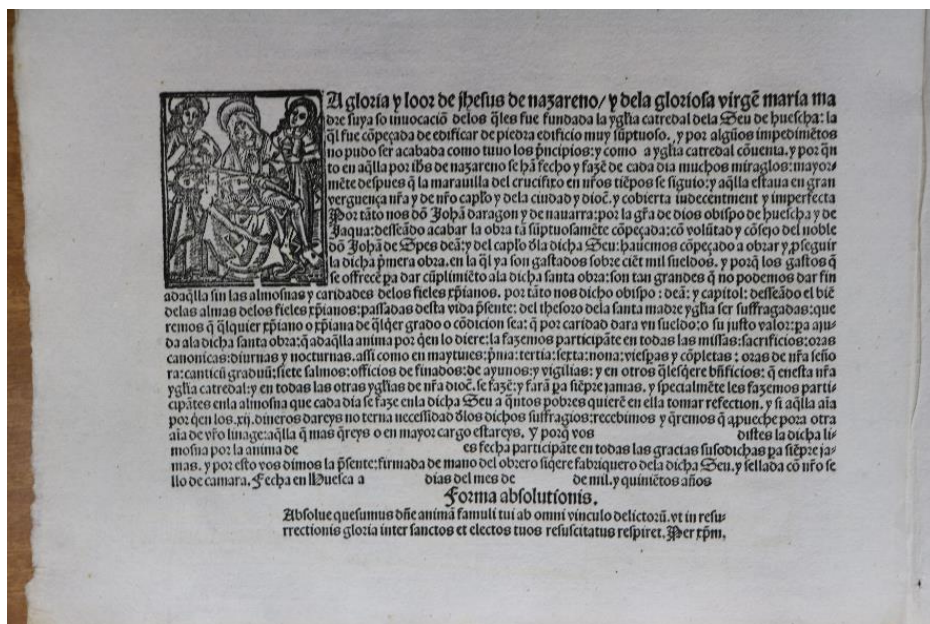 A gloria y loor de jhesus de nazareno/ y dela gloriosa virgē maria ma
dre suya so inuocaciō delos q̄les fue fundada la yglia catredal dela Seu de huescha: la
q̄l fue cōpeçada de edificar de piedra edificio muy sūptuoso. y por algūos impedimētos
no pudo ser acabada como tuuo los p̄ncipios: y como a yglia catredal cōuenta. y por q̄n
to en aq̄lla por ihs de nazareno se hā fecho y fazē de cada dia muchos miraglos: mayor-
mēte despues q̄ la marauilla del crucifixo en nr̄os tiēpos se siguio: y aq̄lla estaua en gran
verguença nr̄a y de nr̄o caplo y dela ciudad y dioc̄. y cobierta indecentment y imperfecta
Por tāto nos dō Johā daragon y de nauarra: por la gr̄a de dios obispo de huescha y de
Jaqua: desseādo acabar la obra tā sūptuosamēte cōpeçada: cō volūtad y cōsejo del noble
dō Johā de Spes deā: y del caplo d̄la dicha Seu: hauemos cōpeçado a obrar y p̱seguir
la dicha p̄mera obra. en la q̄l ya son gastados sobre ciēt mil sueldos. y porq̄ los gastos q̄
se offrecē pa dar cūplimiēto ala dicha santa obra: son tan grandes q̄ no podemos dar fin
adaq̄lla sin las almosnas y caridades delos fieles xp̄ianos. por tāto nos dicho obispo: deā: y capitol: desseādo el biē
delas almas delos fieles xp̄ianos: passadas desta vida p̄sente: del thesoro dela santa madre yglia ser suffragadas: que
remos q̄ q̄lquier xp̄iano o xp̄iana de q̄lq̄er grado o cōdicion sea: q̄ por caridad dara vn sueldo: o su justo valor: pa aju-
da ala dicha santa obra: q̄ adaq̄lla anima por q̄en lo diere: la fazemos participāte en todas las missas: sacrificios: oras
canonicas: diurnas y nocturnas. assi como en maytines: p̄ma: tertia: sexta: nona: viespas y cōpletas: oras de nr̄a seño
ra: canticū graduū: siete salmos: officios de finados: de ayunos: y vigilias: y en otros q̄lesq̄ere bn̄ficios: q̄ enesta nr̄a
yglia catredal: y en todas las otras yglias de nr̄a dioc̄. se fazē: y farā pa siēpre jamas. y specialmēte les fazemos parti-
cipātes enla almosna que cada dia se faze enla dicha Seu a q̄ntos pobres quierē en ella tomar refection. y si aq̄lla aīa
por q̄en los .xij. dineros dareys no terna necessidad d̄los dichos suffragios: recebimos y q̄remos q̄ apueche pora otra
aīa de vr̄o linage: aq̄lla q̄ mas q̄reys o en mayor cargo estareys. y porq̄ vos distes la dicha li-
mosna por la anima de es fecha participāte en todas las gracias susodichas pa siēpre ja-
mas. y por esto vos dimos la p̄sente: firmada de mano del obrero siq̄ere fabriquero dela dicha Seu. y sellada cō nr̄o se
llo de camara. Fecha en Huesca a dias del mes de de mil. y quiniētos años
Forma absolutionis.
Absolue quesumus dn̄e animā famuli tui ab omni vinculo delictorū. vt in resu-
rrectionis gloria inter sanctos et electos tuos resuscitatus respiret. Per xp̄m.